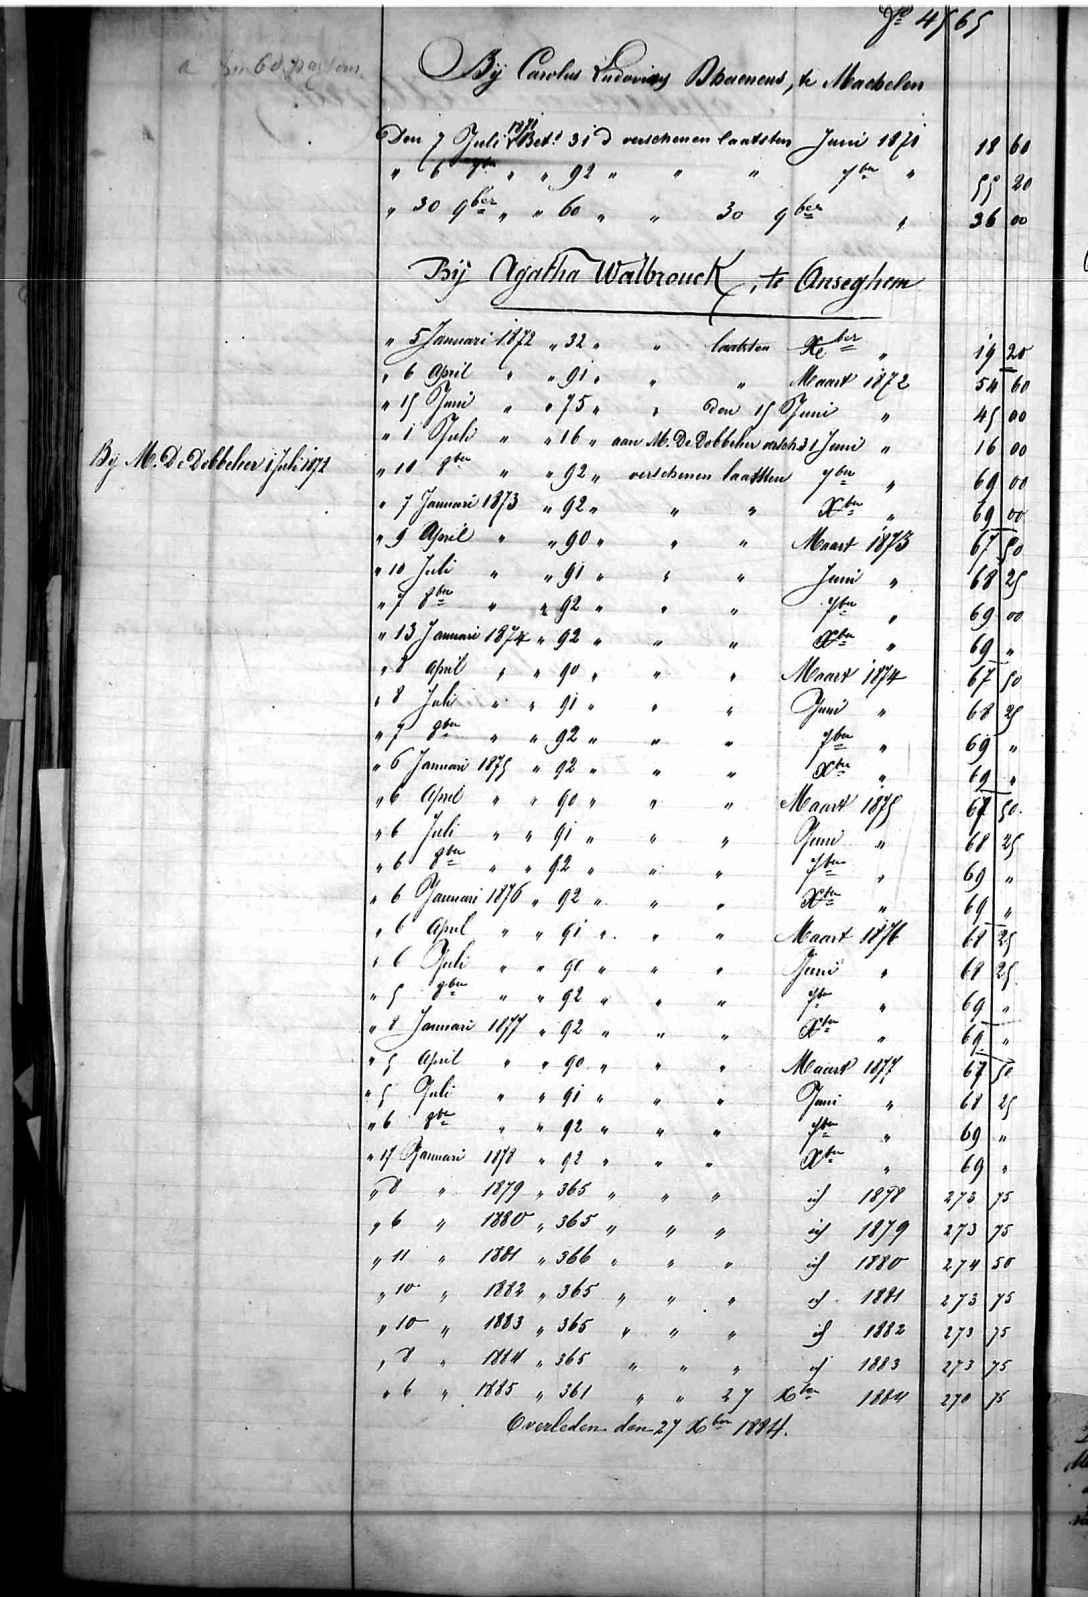 N° 4565
Bij Carolus Ludovicus Bhaenens, te Machelen
Den 7 Juli 1871 Bet.d 31 d verschenen laatsten Juni 1871 18 60
" 6 8ber " " 92 " " " 7ber " 55 20
" 30 9ber " " 60 " " 30 9ber " 36 00
Bij Agatha Walbrouck, te Anseghem
" 5 Januari 1872 " 32 " " laatsten Xber " 19 20
" 6 April " " 91 " " " Maart 1872 54 60
" 15 Juni " " 75 " " den 15 Juni " 45 00
" 1 Juli " " 16 " aan M. De Dobbeler versch. 31 Juni " 16 00
By M. De Dobbeler 1 Juli 1872
" 10 8ber " " 92 " verschenen laatsten 7ber " 69 00
" 7 Januari 1873 " 92 " " " Xber " 69 00
" 9 April " " 90 " " " Maart 1873 67 50
" 10 Juli " " 91 " " " Juni " 68 25
" 7 8ber " " 92 " " " 7ber " 69 00
" 13 Januari 1874 " 92 " " " Xber " 69 "
" 8 April " " 90 " " " Maart 1874 67 50
" 8 Juli " " 91 " " " Juni " 68 25
" 7 8ber " " 92 " " " 7ber " 69 "
" 6 Januari 1875 " 92 " " " Xber " 69 "
" 6 April " " 90 " " " Maart 1875 67 50
" 6 Juli " " 91 " " " Juni " 68 25
" 6 8ber " " 92 " " " 7ber " 69 "
" 6 Januari 1876 " 92 " " " Xber " 69 "
" 6 April " " 91 " " " Maart 1876 68 25
" 6 Juli " " 91 " " " Juni " 68 25
" 5 8ber " " 92 " " " 7ber " 69 "
" 8 Januari 1877 " 92 " " " Xber " 69 "
" 5 April " " 90 " " " Maart 1877 67 50
" 5 Juli " " 91 " " " Juni " 68 25
" 6 8ber " " 92 " " " 7ber " 69 "
" 15 Januari 1878 " 92 " " " Xber " 69 "
" 8 " 1879 " 365 " " " id 1878 273 75
" 6 " 1880 " 365 " " " id 1879 273 75
" 11 " 1881 " 366 " " " id 1880 274 50
" 10 " 1882 " 365 " " " id 1881 273 75
" 10 " 1883 " 365 " " " id 1882 273 75
" 8 " 1884 " 365 " " " id 1883 273 75
" 6 " 1885 " 361 " " 27 Xber 1884 270 75
Overleden den 27 Xber 1884.